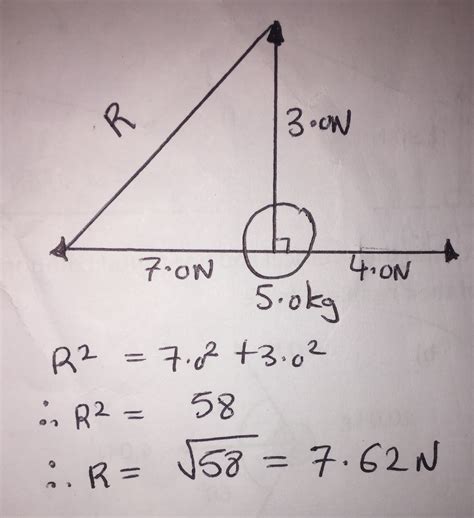 R
3.0N
7.0N
4.0N
5.0kg
R² = 7.0² + 3.0²
∴ R² = 58
∴ R = √58 = 7.62N